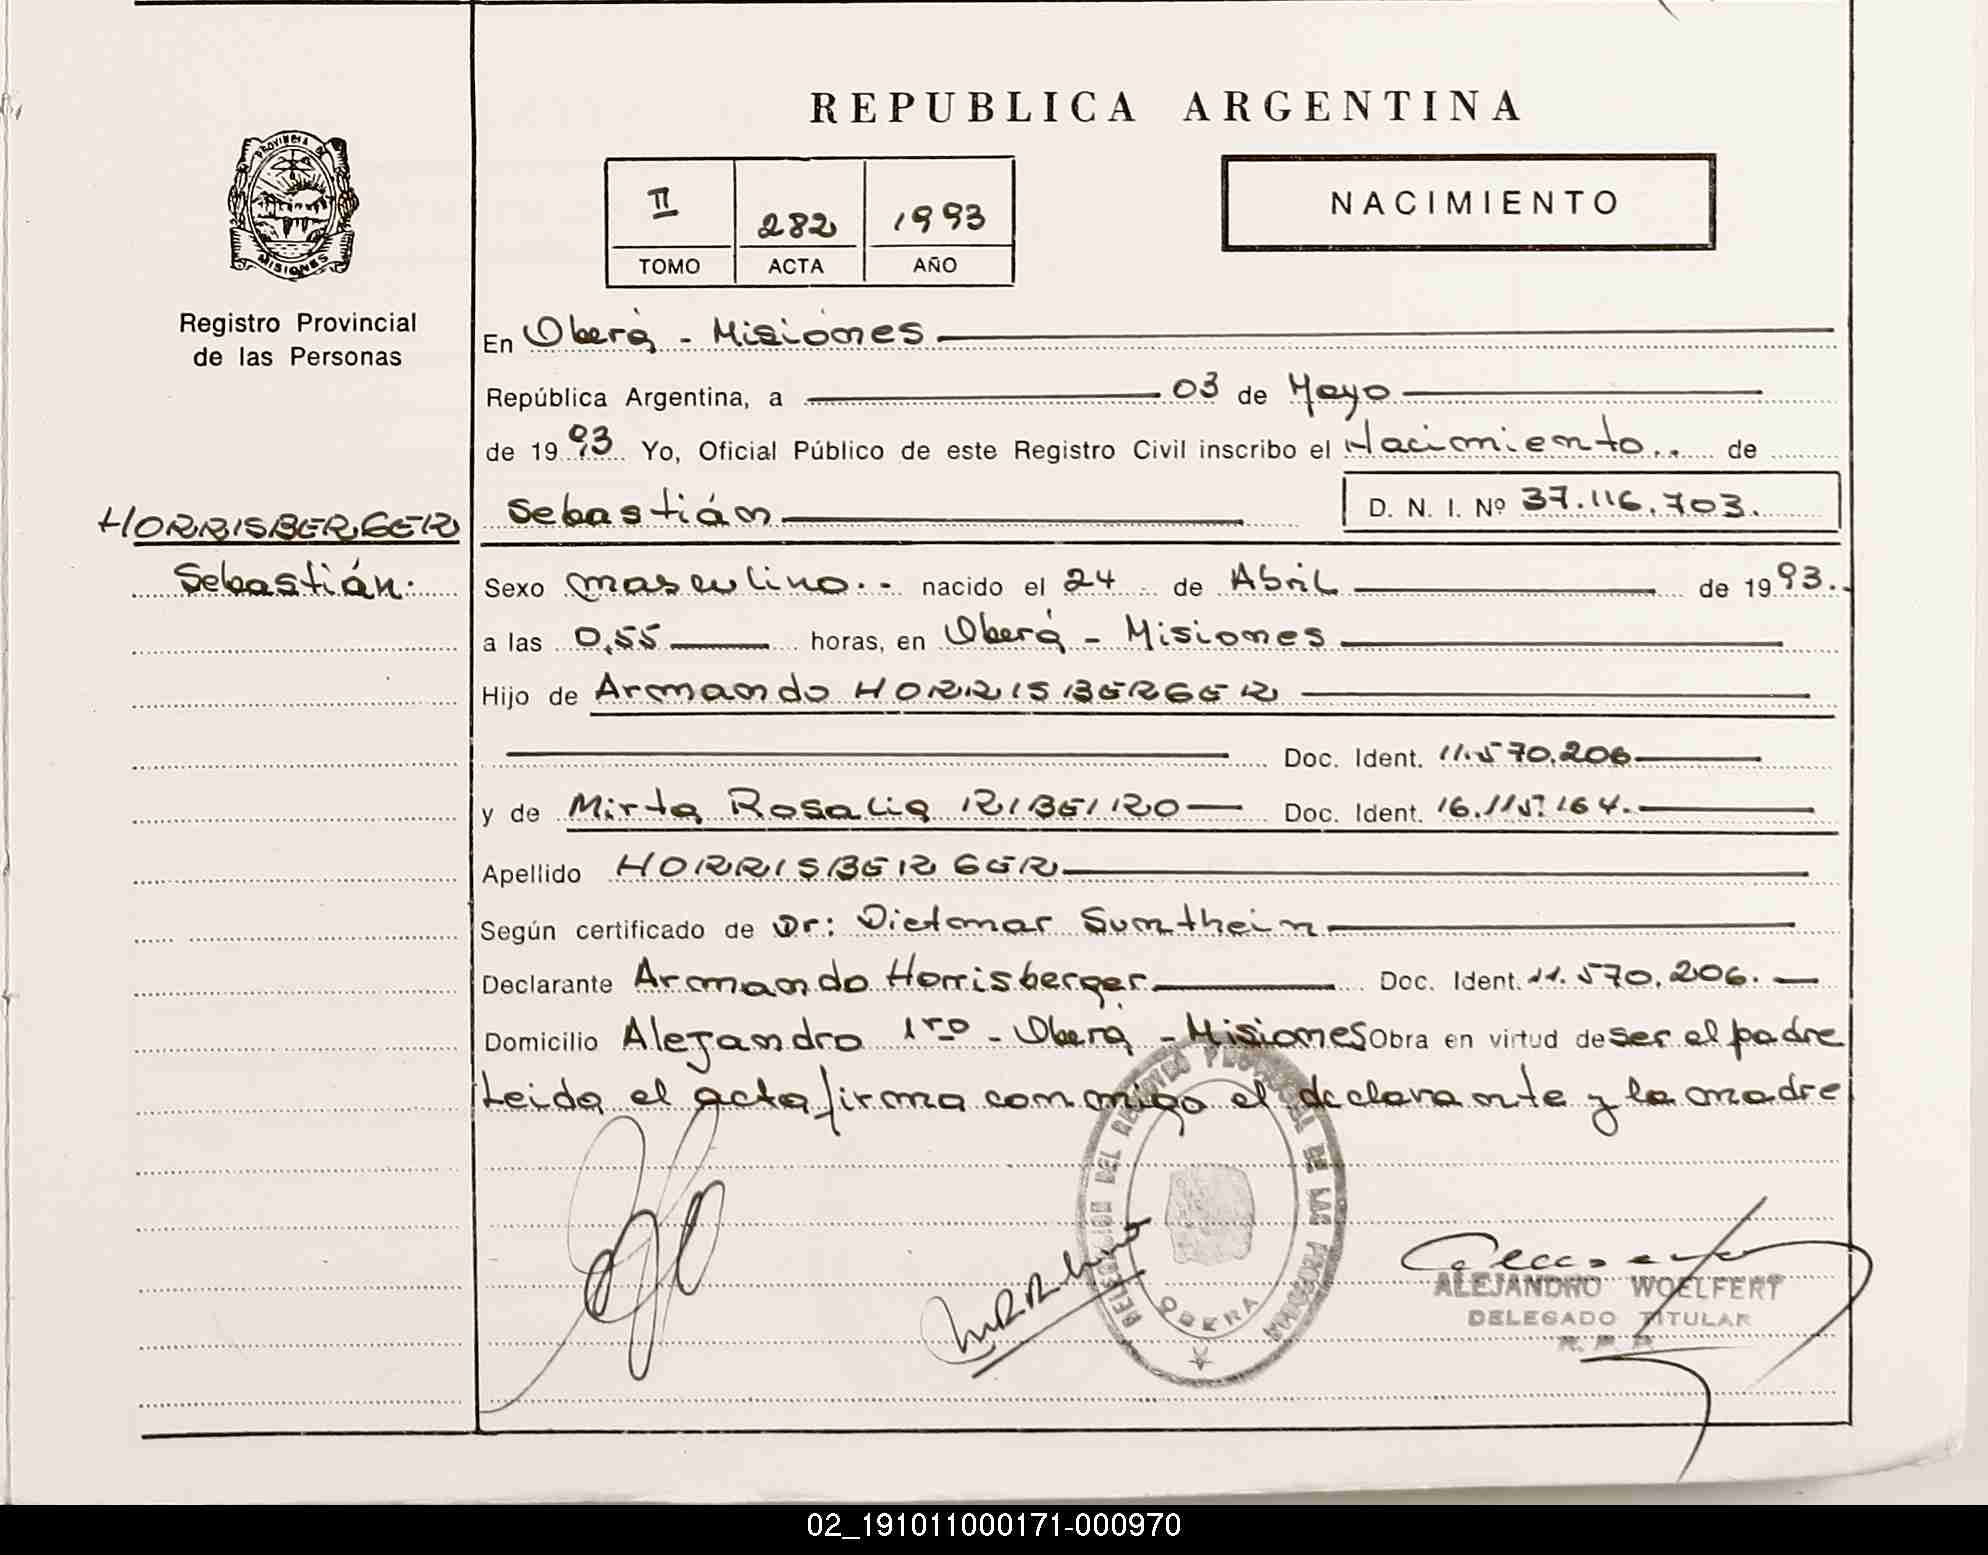 REPUBLICA ARGENTINA
PROVINCIA DE
MISIONES
Registro Provincial
de las Personas
II 282 1993
TOMO ACTA AÑO
NACIMIENTO
En Oberá - Misiones
República Argentina, a 03 de Mayo
de 19 93 Yo, Oficial Público de este Registro Civil inscribo el Nacimiento .. de
Sebastián D. N. I. Nº 37.116.703.
HORRISBERGER
Sebastián.
Sexo masculino.- nacido el 24 de Abril de 19 93.-
a las 0,55 horas, en Oberá - Misiones
Hijo de Armando HORRISBERGER
Doc. Ident. 11.570.206
y de Mirta Rosalia RIBEIRO Doc. Ident. 16.115.164.
Apellido HORRISBERGER
Según certificado de Dr: Dietmar Sumthein
Declarante Armando Horrisberger Doc. Ident. 11.570.206.
Domicilio Alejandro 1ro - Oberá - Misiones Obra en virtud de ser el padre
Leida el acta firma conmigo el declarante y la madre
DELEGACION DEL REGISTRO PROVINCIAL DE LAS PERSONAS
OBERA
ALEJANDRO WOELFERT
DELEGADO TITULAR
R. P. P.
02_191011000171-000970